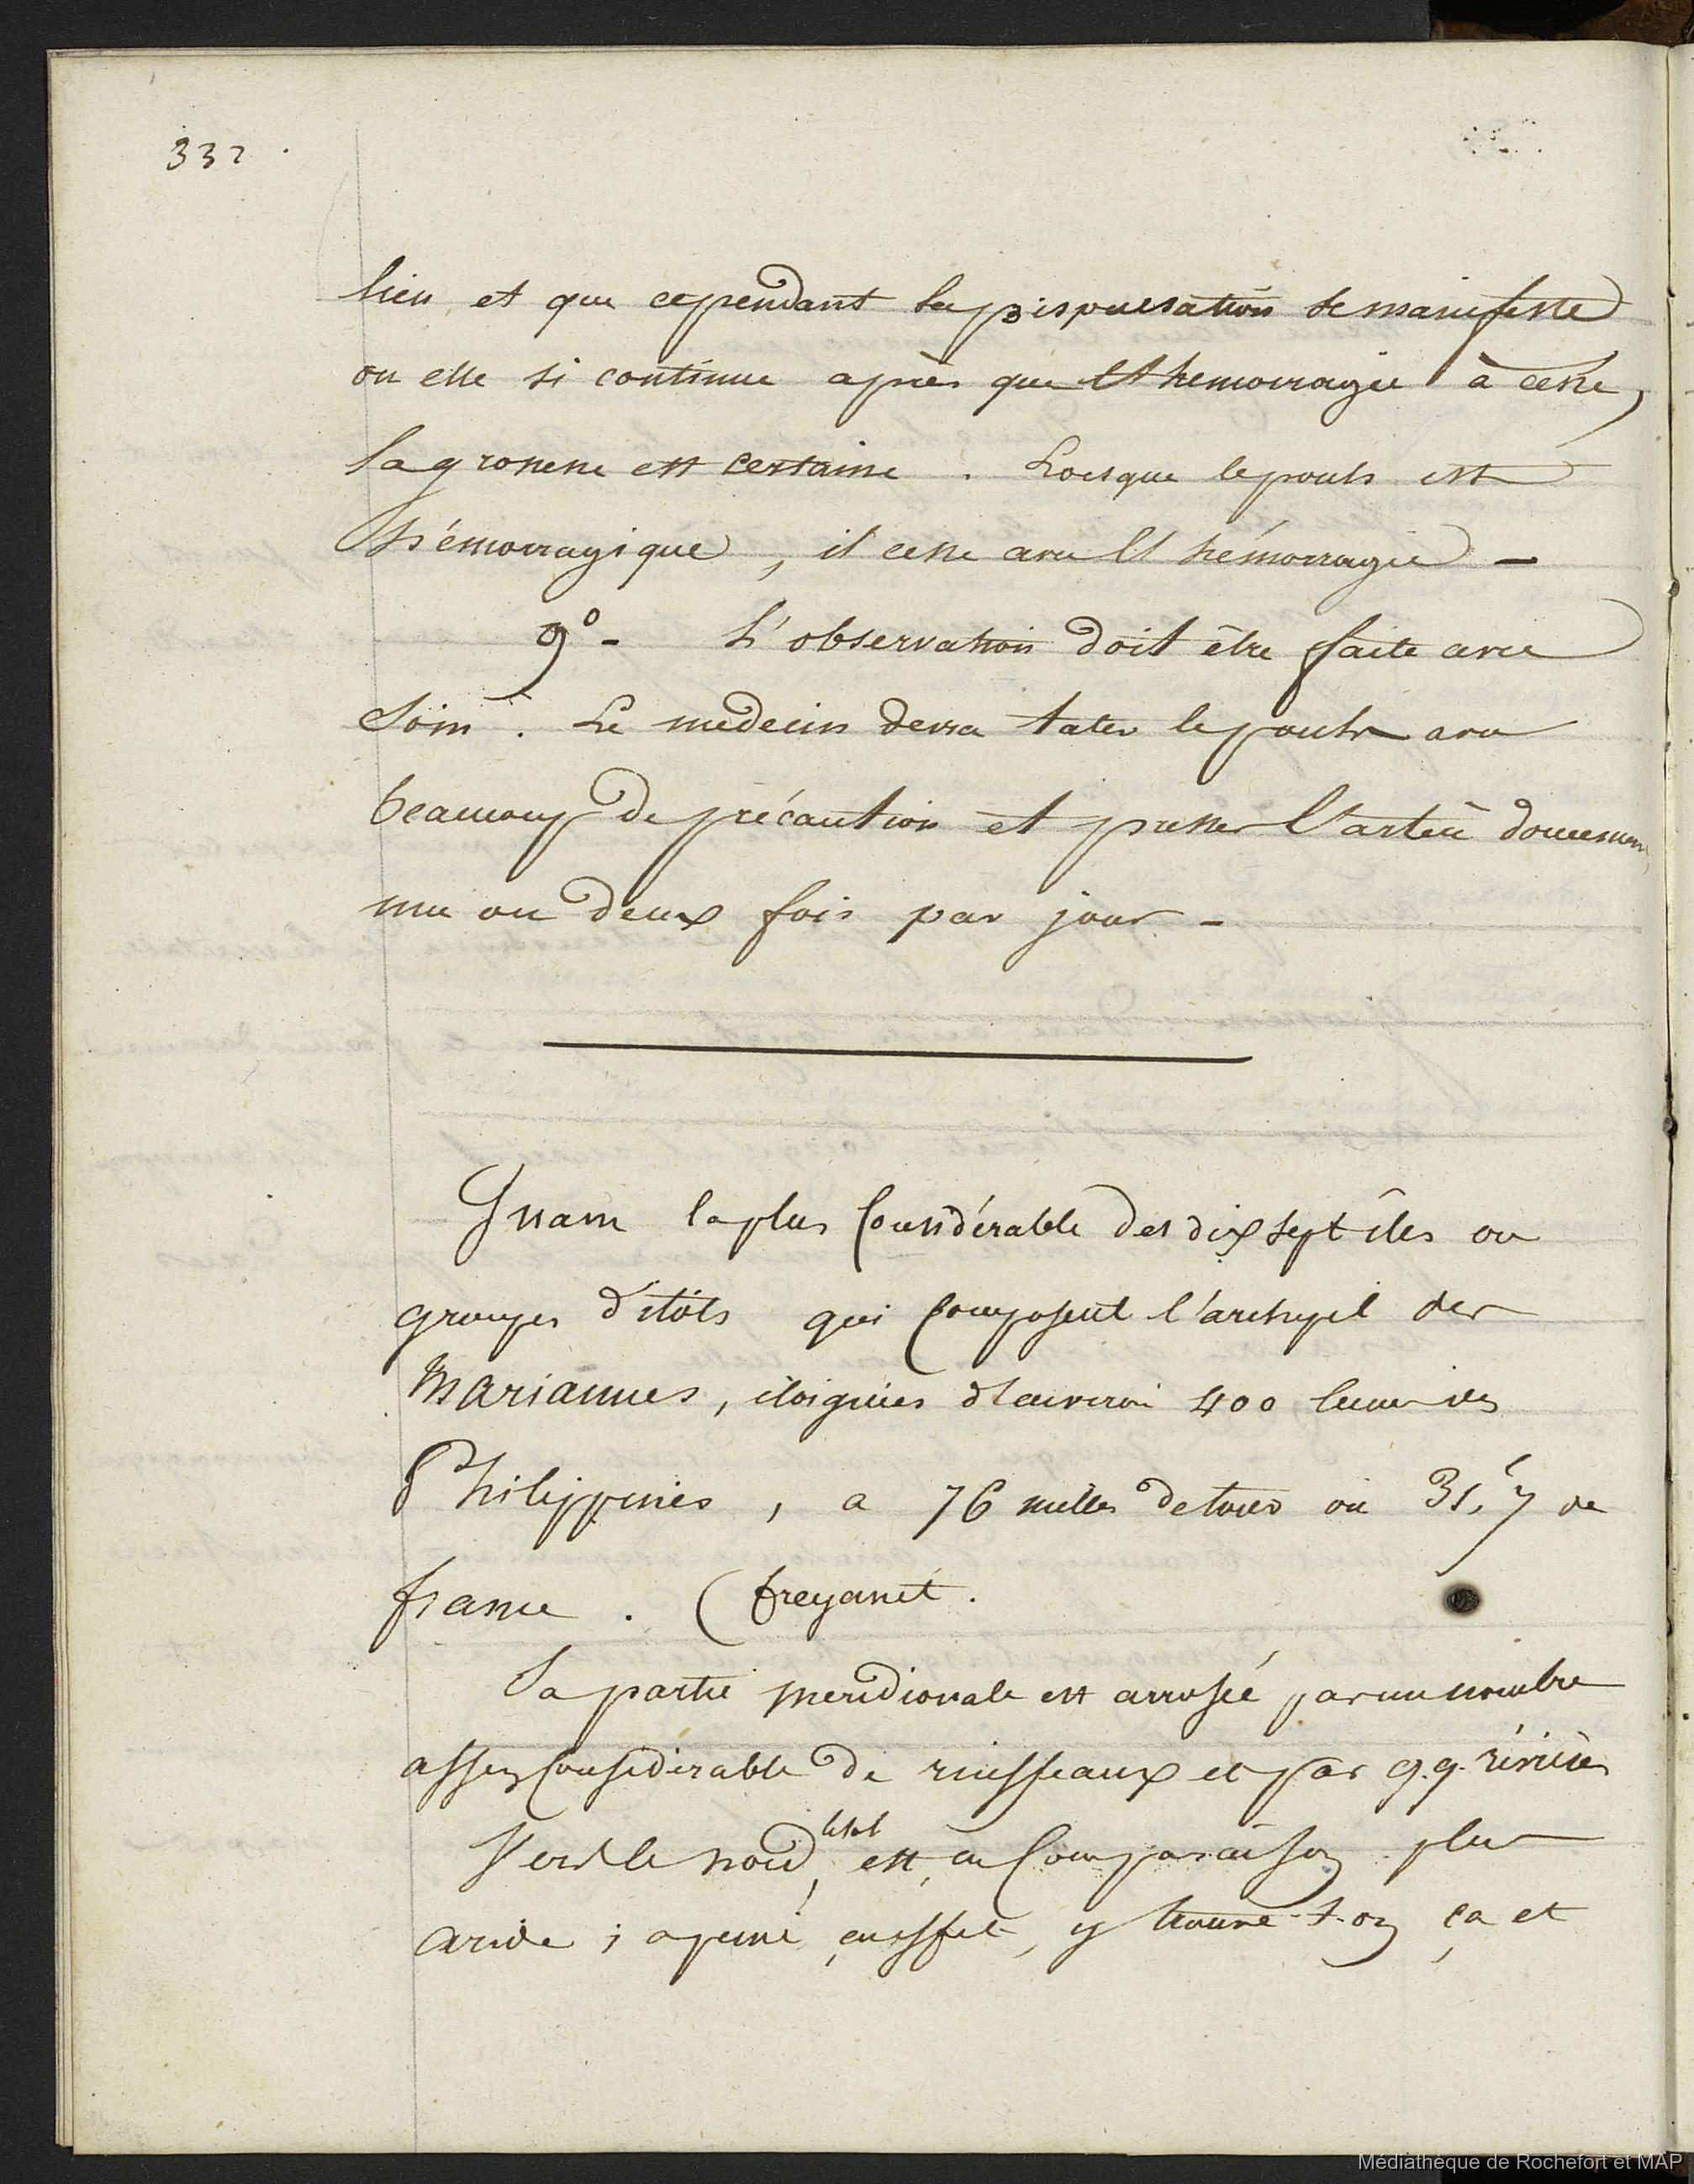 332.
lieu et que cependant la bispulsation se manifeste
ou elle si continue après que l'hemorragie à cesse,
la grossesse est certaine. Lorsque le pouls est
hémorragique, il cesse avec l'hémorragie -
9° - L'observation doit être faite avec
soin. Le medecin devra tater le pouls avec
beaucoup de précaution et presser l'artère doucement
une ou deux fois par jour -
Guam la plus Considérable des dix sept îles ou
groupes d'ilôts qui composent l'archipel des
Mariannes, éloignées d'environ 400 lieues des
Philippines, a 76 milles de tour ou 31,7 de
france. (freycinet.
La partie meridionale est arrosée par un nombre
assez Considerable de ruisseaux et par q.q. rivières
Vers le nord, le sol est, en Comparaison plus
aride ; a peine, en effet, y trouve-t-on ça et
Médiathèque de Rochefort et MAP